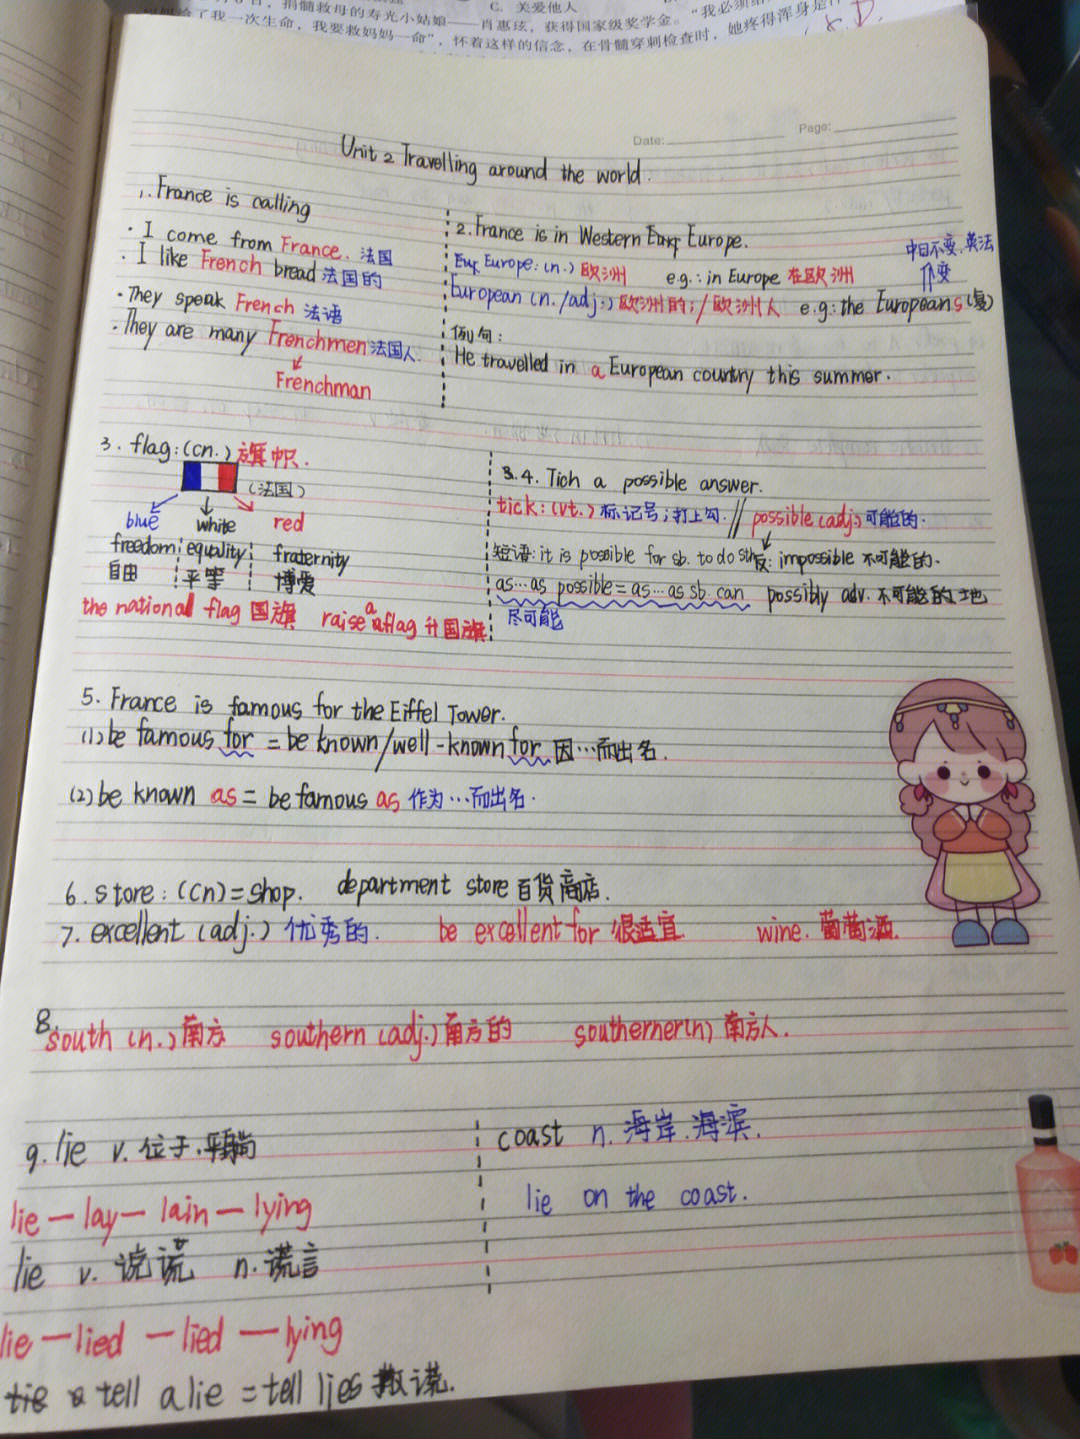 捐髓救母的寿光小姑娘——肖惠玹，获得国家级奖学金。"我必须
C. 关爱他人
给了我一次生命，我要救妈妈一命"，怀着这样的信念，在骨髓穿刺检查时，她疼得浑身是
Date:
Page:
Unit 2 Travelling around the world.
1. France is calling
· I come from France. 法国
· I like French bread 法国的
· They speak French 法语
· They are many Frenchmen 法国人
Frenchman
2. France is in Western Europe.
中日不变.英法
变
Europe: (n.) 欧洲 e.g.: in Europe 在欧洲
European (n./adj.) 欧洲的;/欧洲人 e.g: the Europeans (复)
例句:
He travelled in a European country this summer.
3. flag: (cn.) 旗帜.
(法国)
blue white red
freedom equality fraternity
自由 平等 博爱
the national flag 国旗 raise a flag 升国旗
3.4. Tich a possible answer.
tick: (vt.) 标记号;打上勾. // possible (adj.) 可能的.
短语: it is possible for sb. to do sth 反: impossible 不可能的.
as...as possible = as...as sb. can possibly adv. 不可能的地
尽可能
5. France is famous for the Eiffel Tower.
(1) be famous for = be known/well-known for 因...而出名.
(2) be known as = be famous as 作为...而出名.
6. store: (cn) = shop. department store 百货商店.
7. excellent (adj.) 优秀的. be excellent for 很适宜 wine. 葡萄酒.
8. south (n.) 南方 southern (adj.) 南方的 southerner(n) 南方人.
9. lie v. 位于.平躺
lie — lay — lain — lying
lie v. 说谎 n. 谎言
lie — lied — lied — lying
tell a lie = tell lies 撒谎.
coast n. 海岸.海滨.
lie on the coast.